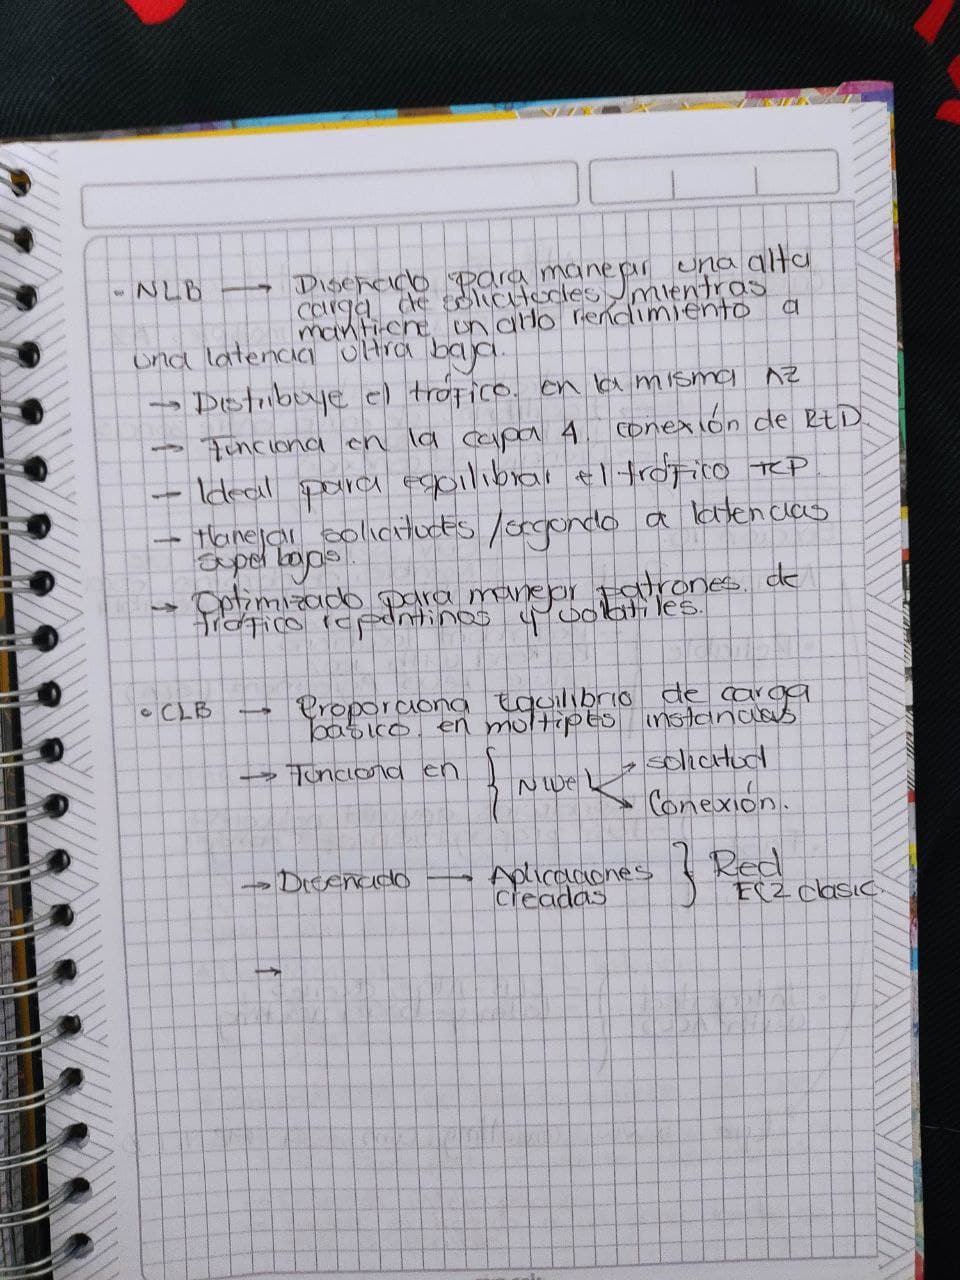 - NLB → Diseñado para manejar una alta
carga de solicitudes, mientras
mantiene un alto rendimiento a
una latencia ultra baja.
→ Distribuye el tráfico. en la misma AZ
→ Funciona en la capa 4, conexión de RED.
→ Ideal para equilibrar el tráfico TCP.
→ Manejar solicitudes /segundo a latencias
super bajas.
→ Optimizado para manejar patrones de
tráfico repentinos y volátiles.
• CLB → Proporciona Equilibrio de carga
básico. en múltiples instancias
→ Funciona en { Nivel solicitud
Conexión.
→ Diseñado → Aplicaciones } Red
creadas EC2 clasic.
→